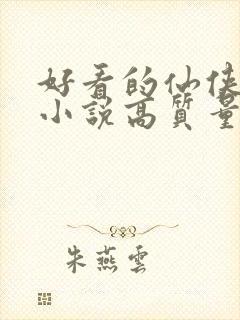 好看的仙侠
小説高質量
朱燕雲